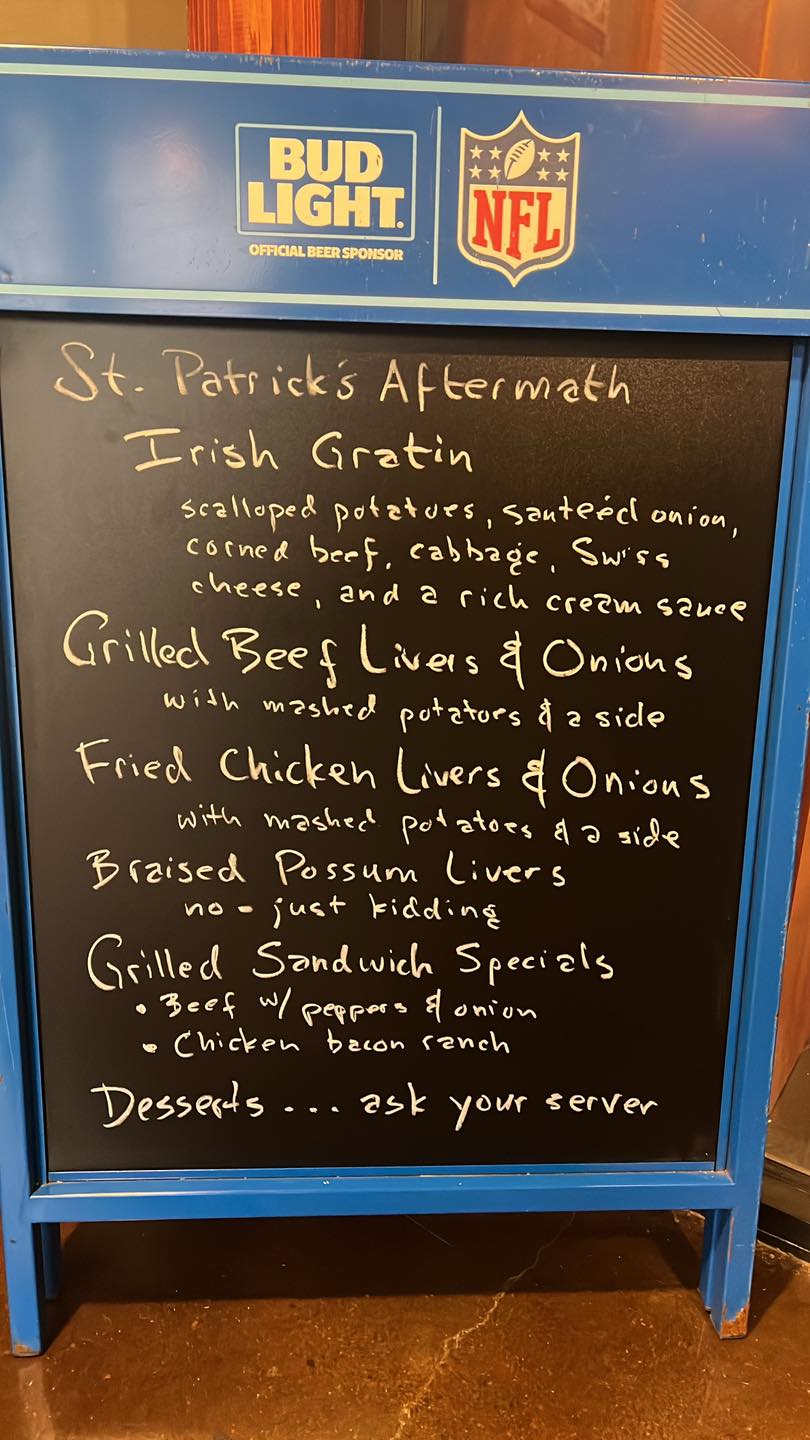 BUD
LIGHT.
OFFICIAL BEER SPONSOR
NFL
St. Patrick's Aftermath
Irish Gratin
scalloped potatoes, sauteéd onion,
corned beef, cabbage, Swiss
cheese, and a rich cream sauce
Grilled Beef Livers & Onions
with mashed potatoes & a side
Fried Chicken Livers & Onions
with mashed potatoes & a side
Braised Possum Livers
no - just kidding
Grilled Sandwich Specials
• Beef w/ peppers & onion
• Chicken bacon ranch
Desserts... ask your server